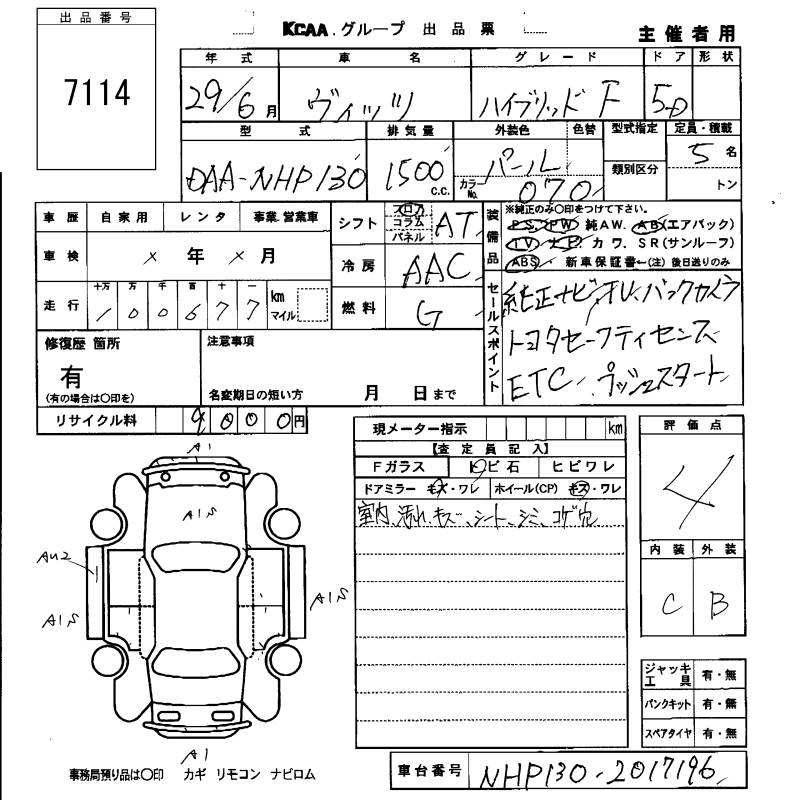 出品番号
7114
KCAA.グループ 出品票
主催者用
年式 車名 グレード ドア 形状
29/6月 ヴィッツ ハイブリッド F 5D
型式 排気量 外装色 色替 型式指定 定員・積載
DAA-NHP130 1500 C.C. パール 類別区分 5名
カラーNo. 070 トン
車歴 自家用 レンタ 事業.営業車
シフト フロア コラム パネル AT
車検 ×年×月
冷房 AAC
走行 十万 万 千 百 十 一
1 0 0 6 7 7 km マイル
燃料 G
装備品
※純正のみ〇印をつけて下さい。
P.S. PW 純AW. AB(エアバック)
TV ナビ カワ. SR(サンルーフ)
ABS 新車保証書←(注)後日送りのみ
セールスポイント
純正ナビ・TV.バックカメラ
トヨタセーフティセンス
ETC. プッシュスタート
修復歴 箇所
有
(有の場合は〇印を)
注意事項
名変期日の短い方 月 日まで
リサイクル料 9000円
現メーター指示 km
【査定員記入】
Fガラス トビ石 ヒビワレ
ドアミラー キズ・ワレ ホイール(CP) キズ・ワレ
室内、汚れ、キズ、シート、シミ、コゲ穴
評価点
4
内装 外装
C B
A1
A1S
AU2
A1S
A1S
A1
ジャッキ工具 有・無
パンクキット 有・無
スペアタイヤ 有・無
事務局預り品は〇印 カギ リモコン ナビロム
車台番号 NHP130-2017196